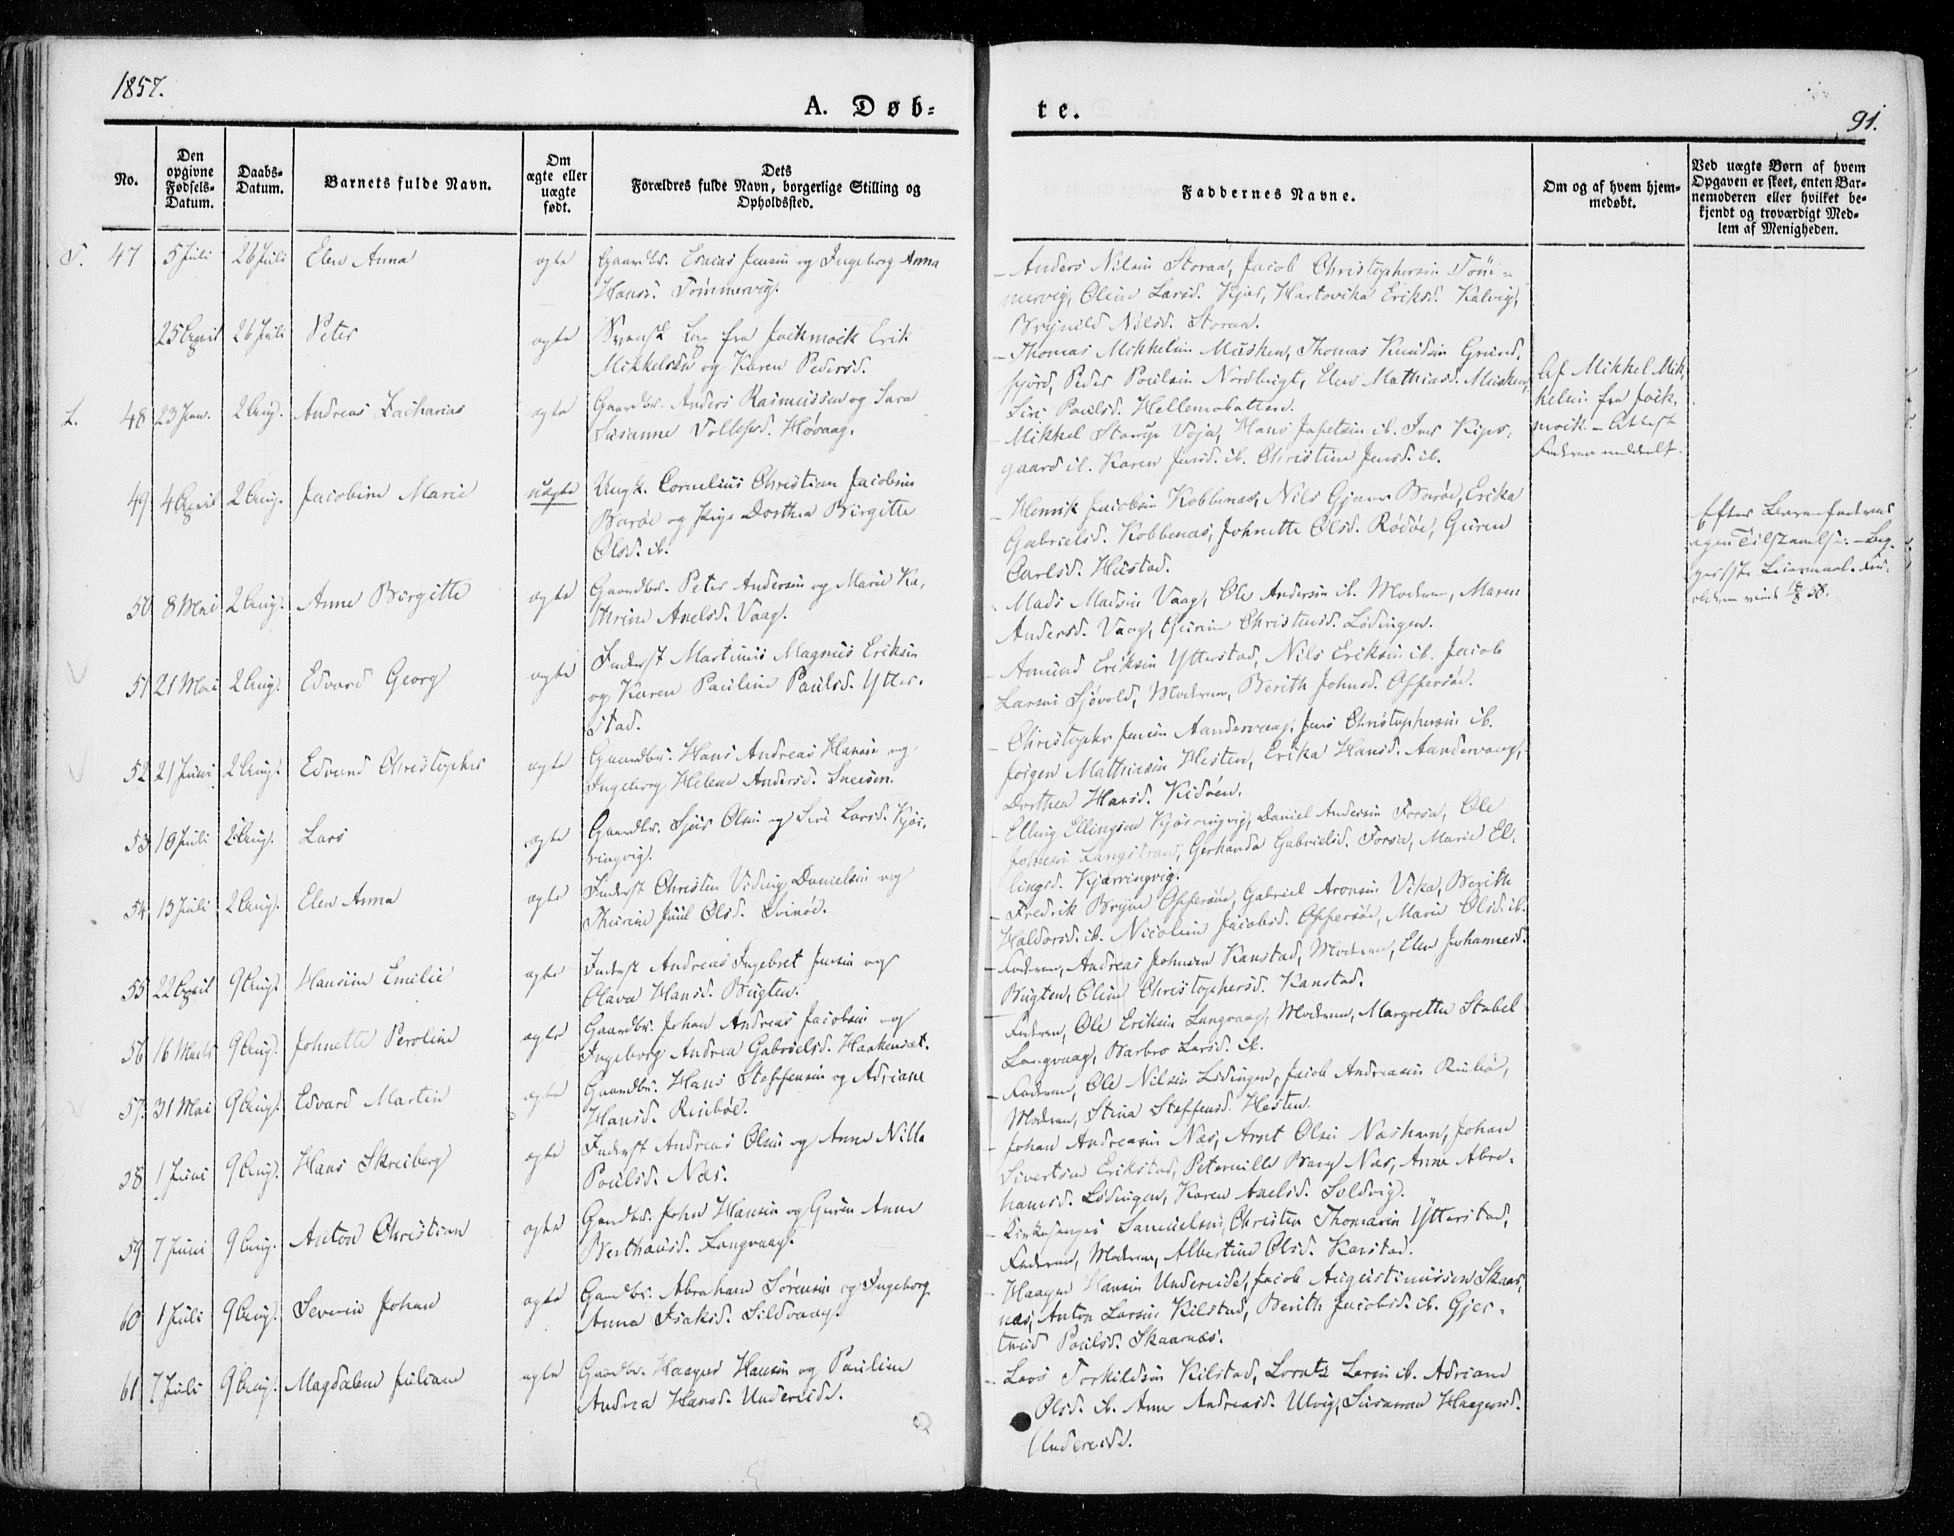 1857.
A. Døb-
te.
91.
No.
Den opgivne Fødsels-Datum.
Daabs-Datum.
Barnets fulde Navn.
Om ægte eller uægte født.
Dets Forældres fulde Navn, borgerlige Stilling og Opholdssted.
Faddernes Navne.
Om og af hvem hjem-medøbt.
Ved uægte Børn af hvem Opgaven er skeet, enten Bar-nemoderen eller hvilket be-kjendt og troværdigt Med-lem af Menigheden.
T. 47 5 Juli 26 Juli Elen Anna ægte Gaardbr. Esaias Jensen og Ingeborg Anna
Hansd. Tømmervig.
Anders Nilsen Storaa, Jacob Christophersen Tøm-
mervig, Oline Larsd. Kjær, Hartvika Eriksd. Kalvig,
Brynild Nilsd. Storaa.
25 April 26 Juli Peter ægte Svensk Lap fra Jockmock Erik
Mikkelsen og Karen Pedersd.
Thomas Mikkelsen Musken, Thomas Knudsen Grund-
fjord, Peder Poulsen Nordbugt, Elen Mathiasd. Musken,
Siri Poulsd. Hellemobotten.
Af Mikkel Mik-
kelsen fra Jock-
mock. - Attest
Faderen meddelt.
L. 48 23 Jan. 2 Aug. Andreas Zacharias ægte Gaardbr. Anders Rasmussen og Sara
Susanne Tollefsd. Høvaag.
Mikkel Voja, Hans Japetsen ib. Jens
gaard ib. Karen Jensd. ib. Christine Jensd. ib.
49 4 April 2 Aug. Jacobine Marie uægte Ungk. Cornelius Christian Jacobsen
Barøe og Pige Dorthea Birgitte
Olsd. ib.
Henrik Jacobsen Kobbenæs, Nils Barøe, Erika
Gabrielsd. Kobbenæs, Johnette Olsd. Rødøe, Guren
Carlsd. Hustad.
Efter Barnefaderens
egen Tilstaaelse.
Leiermaal.
50 8 Mai 2 Aug. Anne Birgitte ægte Gaardbr. Peter Andersen og Marie Ka-
thrine Axelsd. Vaag.
Mads Madsen Vaag, Ole Andersen ib. Moderen, Maren
Andersd. Vaag, Guren Christensd. Lødingen.
51 21 Mai 2 Aug. Edvard Georg ægte Inderst Martinus Magnus Eriksen
og Karen Pauline Paulsd. Ytter-
stad.
Amund Eriksen Ytterstad, Nils Eriksen ib. Jacob
Larsen Sjøvold, Moderen, Berith Johnsd. Offersøe.
52 21 Juni 2 Aug. Edvard Christopher ægte Gaardbr. Hans Andreas Hansen og
Ingeborg Helene Andersd.
Christopher Jensen Aandervaag, Jens Christophersen ib.
Jørgen Mathiasen Hesten, Erika Hansd. Aandervaag,
Dorthea Hansd. Kidøen.
53 10 Juli 2 Aug. Lars ægte Gaardbr. Sjur Olsen og Siri Larsd. Kjær-
ringvig.
Elling Ellingsen Kjærringvig, Daniel Andersen Forsa, Ole
Johnsen Langstrand, Gerharda Gabrielsd. Forsa, Marie El-
lingsd. Kjærringvig.
54 13 Juli 2 Aug. Elen Anna ægte Inderst Christen Viding Danielsen og
Thurine Juul Olsd. Svinøe.
Fredrik Brun Offersøe, Gabriel Aronsen Vika, Berith
Haldorsd. ib. Nicoline Jacobsd. Offersøe, Marie Olsd. ib.
55 22 April 9 Aug. Hansine Emilie ægte Inderst Andreas Ingebret Jensen og
Olava Hansd. Bugten.
Faderen, Andreas Johnsen Kanstad, Moderen, Elen Johannesd.
Bugten, Oline Christophersd. Kanstad.
56 16 Marts 9 Aug. Johnette Peroline ægte Gaardbr. Johan Andreas Jacobsen og
Ingeborg Andrea Gabrielsd. Haakensæt.
Faderen, Ole Eriksen Langvaag, Moderen, Margrethe Stabel
Langvaag, Barbro Larsd. ib.
57 31 Mai 9 Aug. Edvard Martin ægte Gaardbr. Hans Steffensen og Adriane
Hansd. Rinbøe.
Faderen, Ole Nilsen Lødingen, Jacob Andreasen Rinbøe,
Moderen, Stina Steffensd. Hesten.
58 1 Juni 9 Aug. Hans Skreiberg ægte Inderst Andreas Olsen og Anne Nilla
Poulsd. Næs.
Johan Andreasen Næs, Arnt Olsen Næshavn, Johan
Sivertsen Erikstad, Peternille Berg Næs, Anne Abra-
hamsd. Lødingen, Karen Axelsd. Soldvig.
59 7 Juni 9 Aug. Anton Christian ægte Gaardbr. John Hansen og Guren Anne
Berthausd. Langvaag.
Kirkesanger Samuelsen, Christen Thomasen Ytterstad,
Faderen, Moderen, Albertine Olsd. Kanstad.
60 1 Juli 9 Aug. Severin Johan ægte Gaardbr. Abraham Sørensen og Ingeborg
Anna Isaksd. Sildvaag.
Haagen Hansen Undereidet, Jacob Augustinussen Skaar-
næs, Anton Larsen Kilstad, Berith Jacobsd. ib. Gjer-
trud Poulsd. Skaarnæs.
61 7 Juli 9 Aug. Magdalene Juliane ægte Gaardbr. Haagen Hansen og Pauline
Andrea Hansd. Undereidet.
Lars Torkildsen Kilstad, Lorntz Larsen ib. Adriane
Olsd. ib. Anne Andreasd. Ulvig, Susanna Haagensd.
Undereidet.